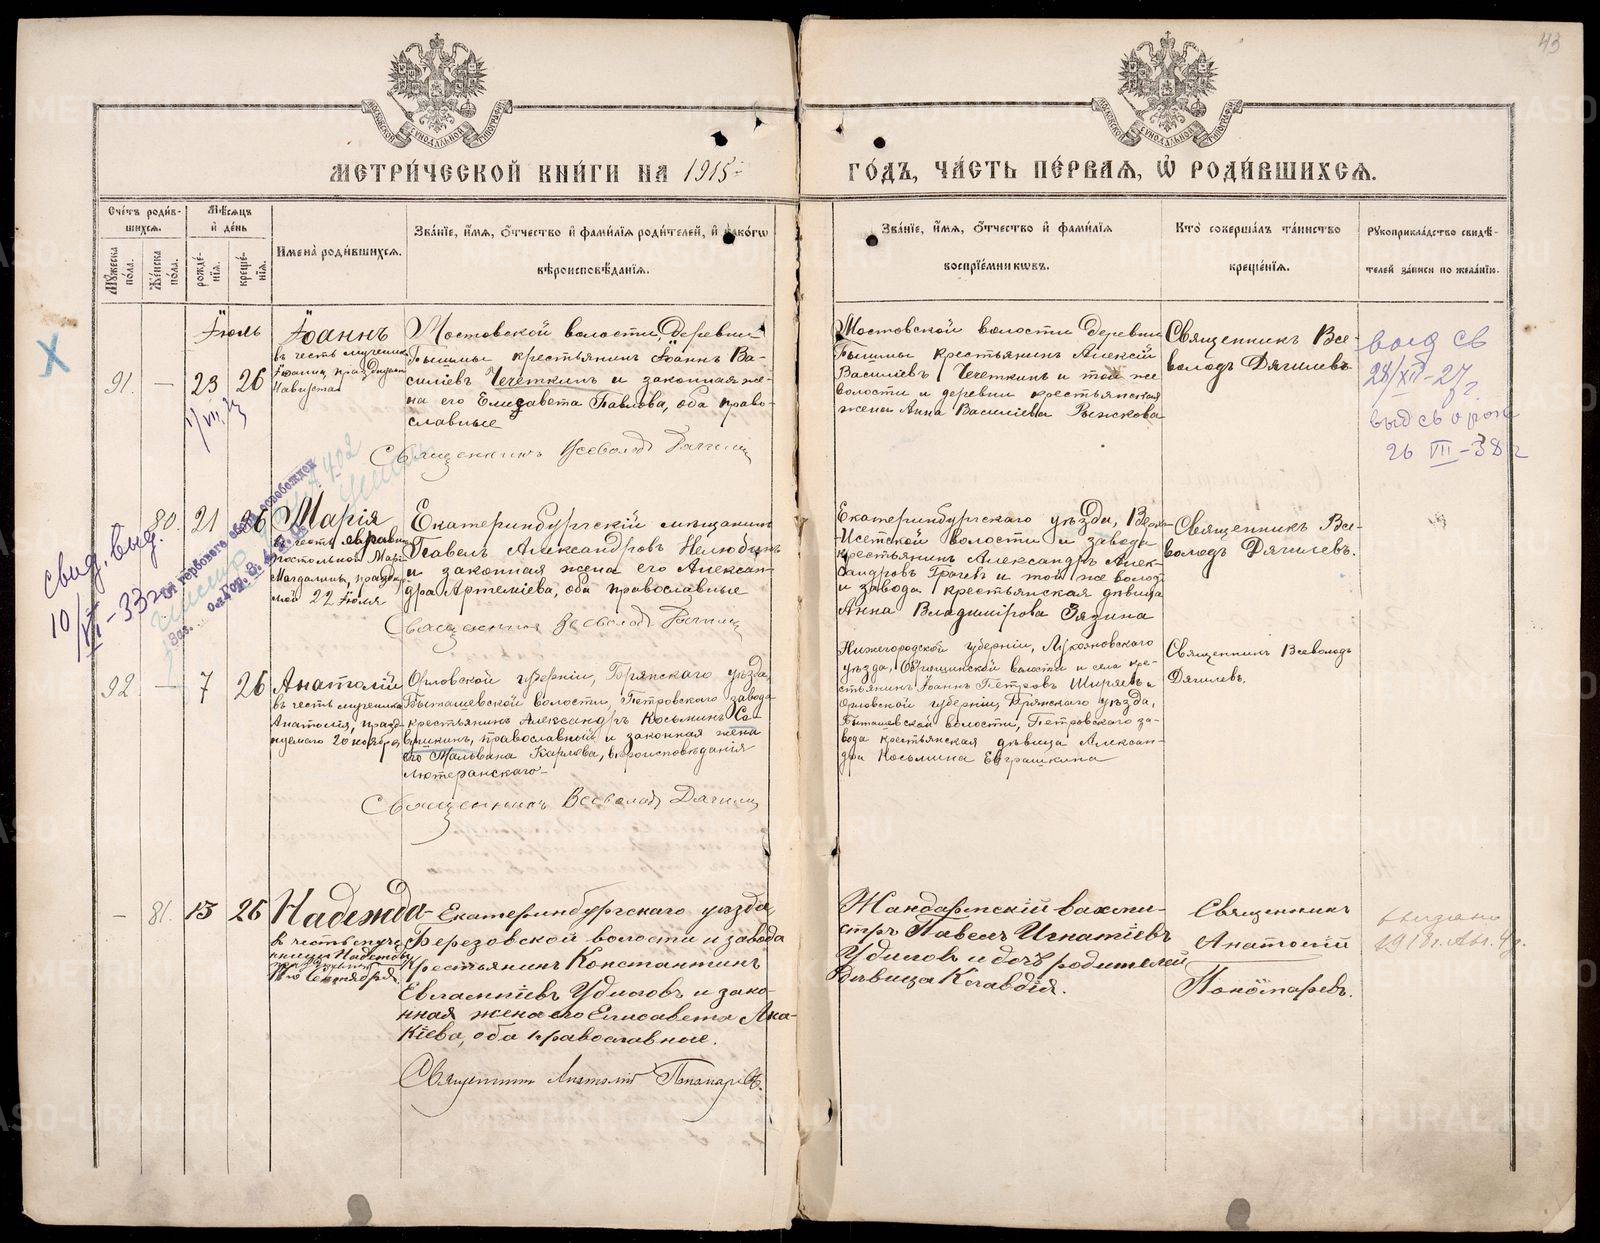 43
МЕТРИ́ЧЕСКОЙ КНИ́ГИ НА 1915
ГО́ДЪ, ЧА́СТЬ ПЕ́РВАѦ, Ѡ҆ РОДИ́ВШИХСѦ.
Сче́тъ роди́в-
шихсѧ.
Мꙋжеска пола.
Же́нска по́ла.
Мѣсѧцъ
и҆ де́нь
рожде́-
нїѧ.
креще́-
нїѧ.
Имена̀ роди́вшихсѧ.
Зва́нїе, и҆́мѧ, ѻ҆́тчество и҆ фами́лїѧ роди́телей, и҆ како́гѡ
вѣроисповѣ́данїѧ.
Зва́нїе, и҆́мѧ, ѻ҆́тчество и҆ фами́лїѧ
воспрїе́мникѡвъ.
Кто̀ соверша́лъ та́инство
креще́нїѧ.
Рꙋкоприкла́дство свидѣ́-
телей за́писи по жела́нїю.
Іюль
91. — 23 26
Іоаннъ
въ честь мученика
Мостовской волости, деревни
Пышмы крестьянинъ Іоаннъ Ва-
силіевъ Чечеткинъ и законная же-
на его Елизавета Павлова, оба право-
славные
Священникъ Всеволодъ Дягилевъ
Мостовской волости деревни
Пышмы крестьянинъ Алексій
Василіевъ Чечеткинъ и той же
волости и деревни крестьянская
жена Анна Василіева Рыжкова
Священникъ Все-
володъ Дягилевъ
выд св
28/XII-27 г.
26 VII-38 г
80. 21 26
Марія
въ честь равноа-
постольной Маріи
Магдалины, праздну-
мой 22 Іюля
свид. выд.
10/VII-33 г.
Екатеринбургскій мѣщанинъ
Павелъ Александровъ Нелюбинъ
и законная жена его Алексан-
дра Артеміева, оба православные
Священникъ Всеволодъ Дягилевъ
Екатеринбургскаго уѣзда, Верх-
Исетской волости и завода
крестьянинъ Александръ Алек-
сандровъ Грачевъ и той же волости
и завода крестьянская дѣвица
Анна Владимірова Зязина
Священникъ Все-
володъ Дягилевъ.
92. — 7 26
Анатолій
въ честь мученика
Анатолія, празд-
нуемаго 20 ноября
Орловской губерніи, Брянскаго уѣзда,
Бытошевской волости, Петровскаго завода
крестьянинъ Александръ Косьминъ
православный и законная жена
его Мальвина Карлова, вѣроисповѣданія
Лютеранскаго
Священникъ Всеволодъ Дягилевъ
Нижегородской губерніи, Лукояновскаго
уѣзда, волости и села кре-
стьянинъ Іоаннъ Петровъ Ширяевъ и
Орловской губерніи, Брянскаго уѣзда,
Бытошевской волости, Петровскаго за-
вода крестьянская дѣвица Алексан-
дра Косьмина Евграшкина
Священникъ Всеволодъ
Дягилевъ.
— 81. 13 26
Надежда
въ честь муче-
ницы Надежды
17-го Сентября.
Екатеринбургскаго уѣзда,
Березовской волости и завода
крестьянинъ Константинъ
Евлампіевъ Удиловъ и зако-
нная жена его Елисавета Ака-
кіева, оба православные.
Священникъ Анатолій Пономаревъ.
Жандармскій вахми-
стръ Павелъ Игнатіевъ
Удиловъ и дочь родителей
дѣвица Клавдія.
Священникъ
Анатолій
Пономаревъ.
выдано
1918 г.